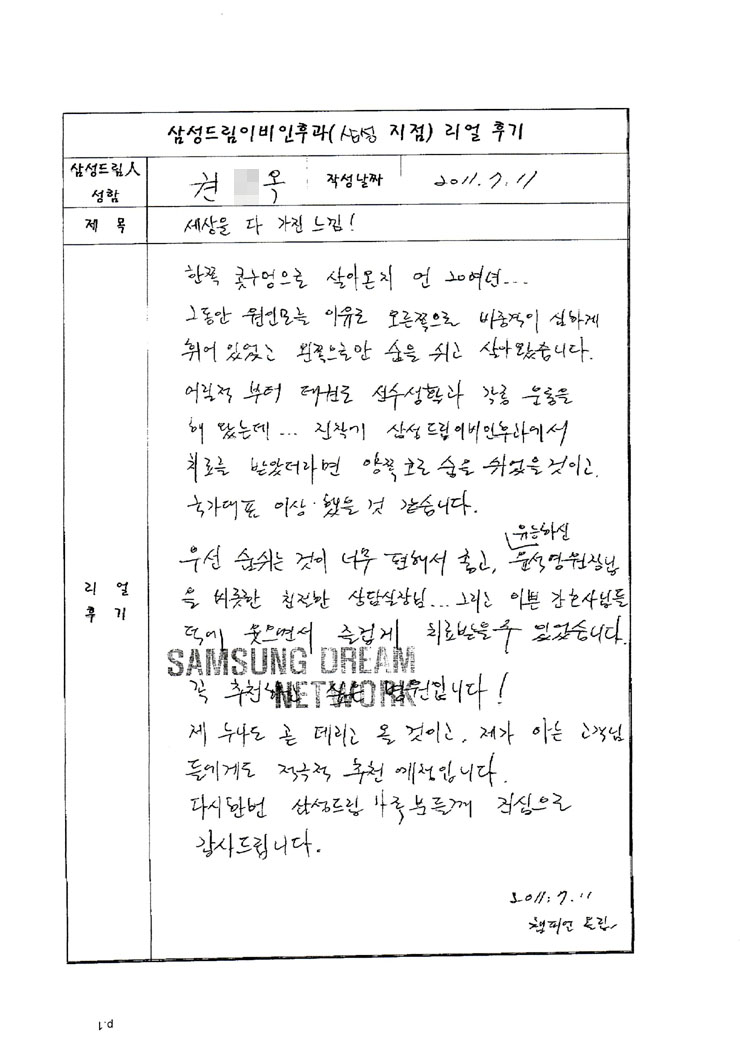 삼성드림이비인후과(삼성 지점) 리얼 후기
삼성드림人 성함
현 옥
작성날짜
2011.7.11
제 목
세상을 다 가진 느낌!
리 얼
후 기
한쪽 콧구멍으로 살아온지 언 20여년...
그동안 원인모를 이유로 오른쪽으로 비중격이 심하게
휘어 있었고 왼쪽으로만 숨을 쉬고 살아왔습니다.
어릴적 부터 태권도 선수생활과 각종 운동을
해 왔는데... 진작기 삼성드림이비인후과에서
치료를 받았더라면 양쪽 코로 숨을 쉬었을 것이고,
국가대표 이상 했을 것 같습니다.
우선 숨쉬는 것이 너무 편해서 좋고, 유능하신 윤석영원장님
을 비롯한 친절한 상담실장님... 그리고 이쁜 간호사님들
덕에 웃으면서 즐겁게 치료받을 수 있었습니다.
SAMSUNG DREAM
NETWORK
꼭 추천하고 싶은 병원입니다!
제 누나도 곧 데리고 올 것이고, 제가 아는 고객님
들에게도 적극적 추천 예정입니다.
다시한번 삼성드림 가족분들께 진심으로
감사드립니다.
2011.7.11
챔피언 드림
p.1